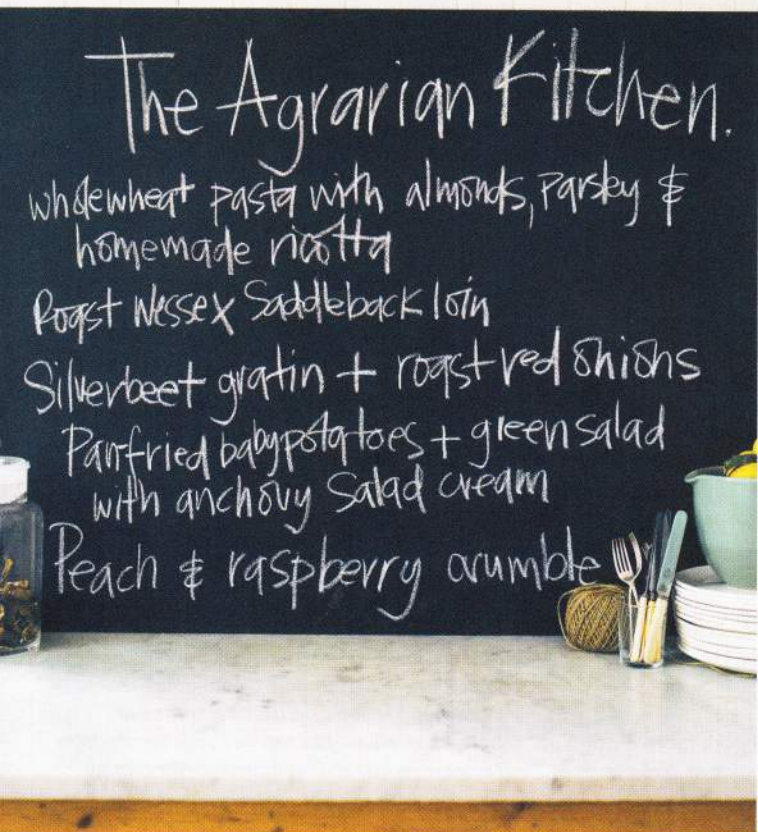 The Agrarian Kitchen.
wholewheat pasta with almonds, parsley &
homemade ricotta
Roast Wessex Saddleback loin
Silverbeet gratin + roast red onions
Panfried baby potatoes + green salad
with anchovy salad cream
Peach & raspberry crumble